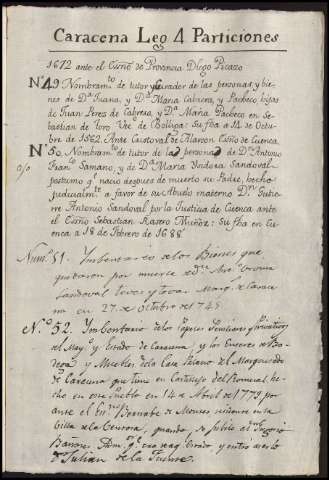 Caracena Leg 4 Particiones
1672 ante el Essno de Provincia Diego Picazo
Nº 49 Nombramto de tutor y curador de las personas y bie-
nes de Da Juana, y Da Maria Cabrera, y Pacheco hijas
de Juan Perez de Cabrera, y Da Maria Pacheco en Se-
bastian de toro Vº de Bolliga: Su fha 14 de Octu-
bre de 1562. Ante Cristoval de Alarcon Essno de Cuenca.
Nº 50. Nombramto de tutor de la persona de Dn Antonio
Franco Samano, y de Da Maria Ysidora Sandoval
postumo q nacio despues de muerto su Padre, hecho
judicialmte a favor de su Abuelo materno Dn Gutie-
rre Antonio Sandoval por la Justicia de Cuenca ante
el Essno Sebastian Rasero Muñoz: Su fha en Cu-
enca a 18 de Febrero de 1688
Num. 51. Imbentario de los Bienes que
quedaron por muerte de
Sandoval Marq. de Carace
na en 27 de Octubre de 1745
N.º 52. Imbentario de los Papeles
del Mayo y Estado de Caracena y los Enseres de Bo
dega y Muebles de la Casa Palacio del Marquesado
de Caracena que tiene en Cortijo del Romeral, he
cho en este Pueblo en 14 de Abril de 1779 por
ante el Essno Bernabe de Montes residente en la
Villa de la quando, se
Bañones
Dn Julian de la Fuente